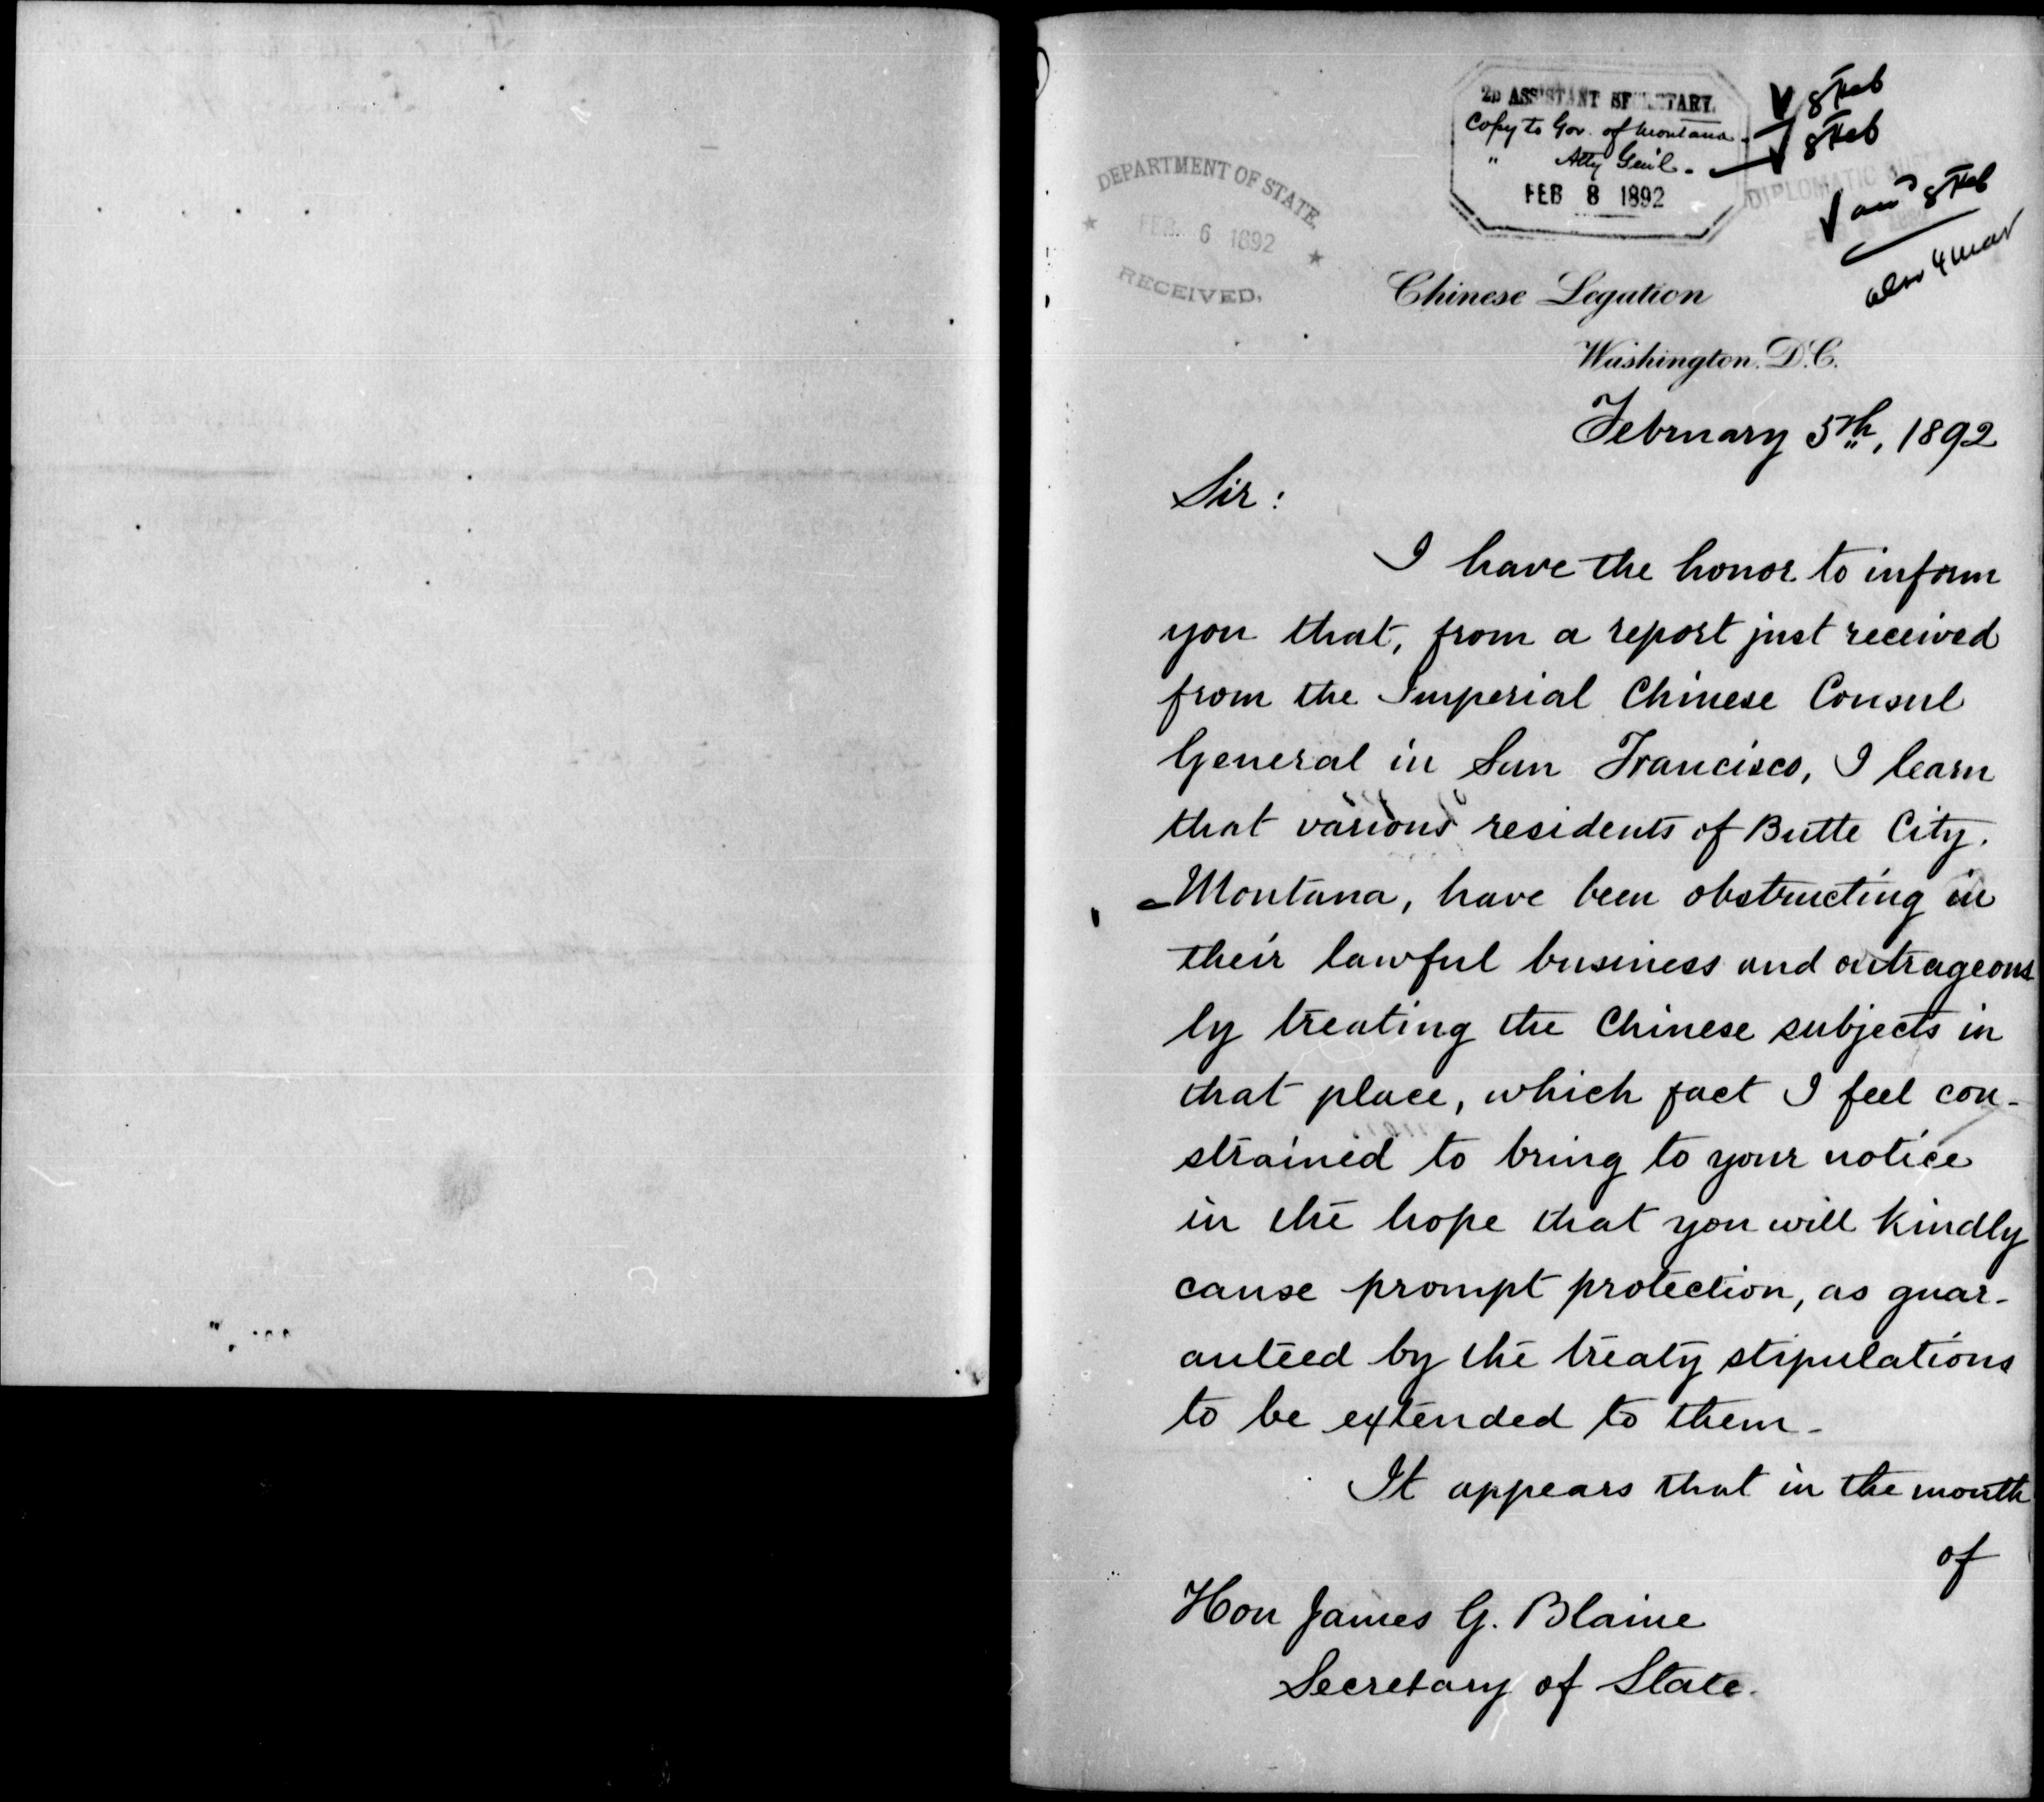 2D ASSISTANT SECRETARY.
Copy to Gov. of Montana - 8 Feb
" Atty Gen'l. - 8 Feb
FEB 8 1892
DEPARTMENT OF STATE,
FEB. 6 1892
RECEIVED.
DIPLOMATIC
ans'd 8 Feb
also 4 Mar
Chinese Legation
Washington. D.C.
February 5th, 1892
Sir:
I have the honor to inform
you that, from a report just received
from the Imperial Chinese Consul
General in San Francisco, I learn
that various residents of Butte City.
Montana, have been obstructing in
their lawful business and outrageous
ly treating the Chinese subjects in
that place, which fact I feel con-
strained to bring to your notice
in the hope that you will kindly
cause prompt protection, as guar-
anteed by the treaty stipulations
to be extended to them-
It appears that in the month
of
Hon James G. Blaine
Secretary of State.